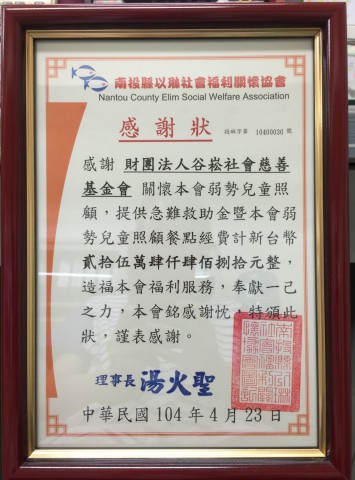 南投縣以琳社會福利關懷協會
Nantou County Elim Social Welfare Association
感謝狀
投琳字第 10400030 號
感謝 財團法人谷崧社會慈善
基金會 關懷本會弱勢兒童照
顧，提供急難救助金暨本會弱
勢兒童照顧餐點經費計新台幣
貳拾伍萬肆仟肆佰捌拾元整，
造福本會福利服務，奉獻一己
之力，本會銘感謝忱，特頒此
狀，謹表感謝。
理事長 湯火聖
中華民國 104 年 4 月 23 日